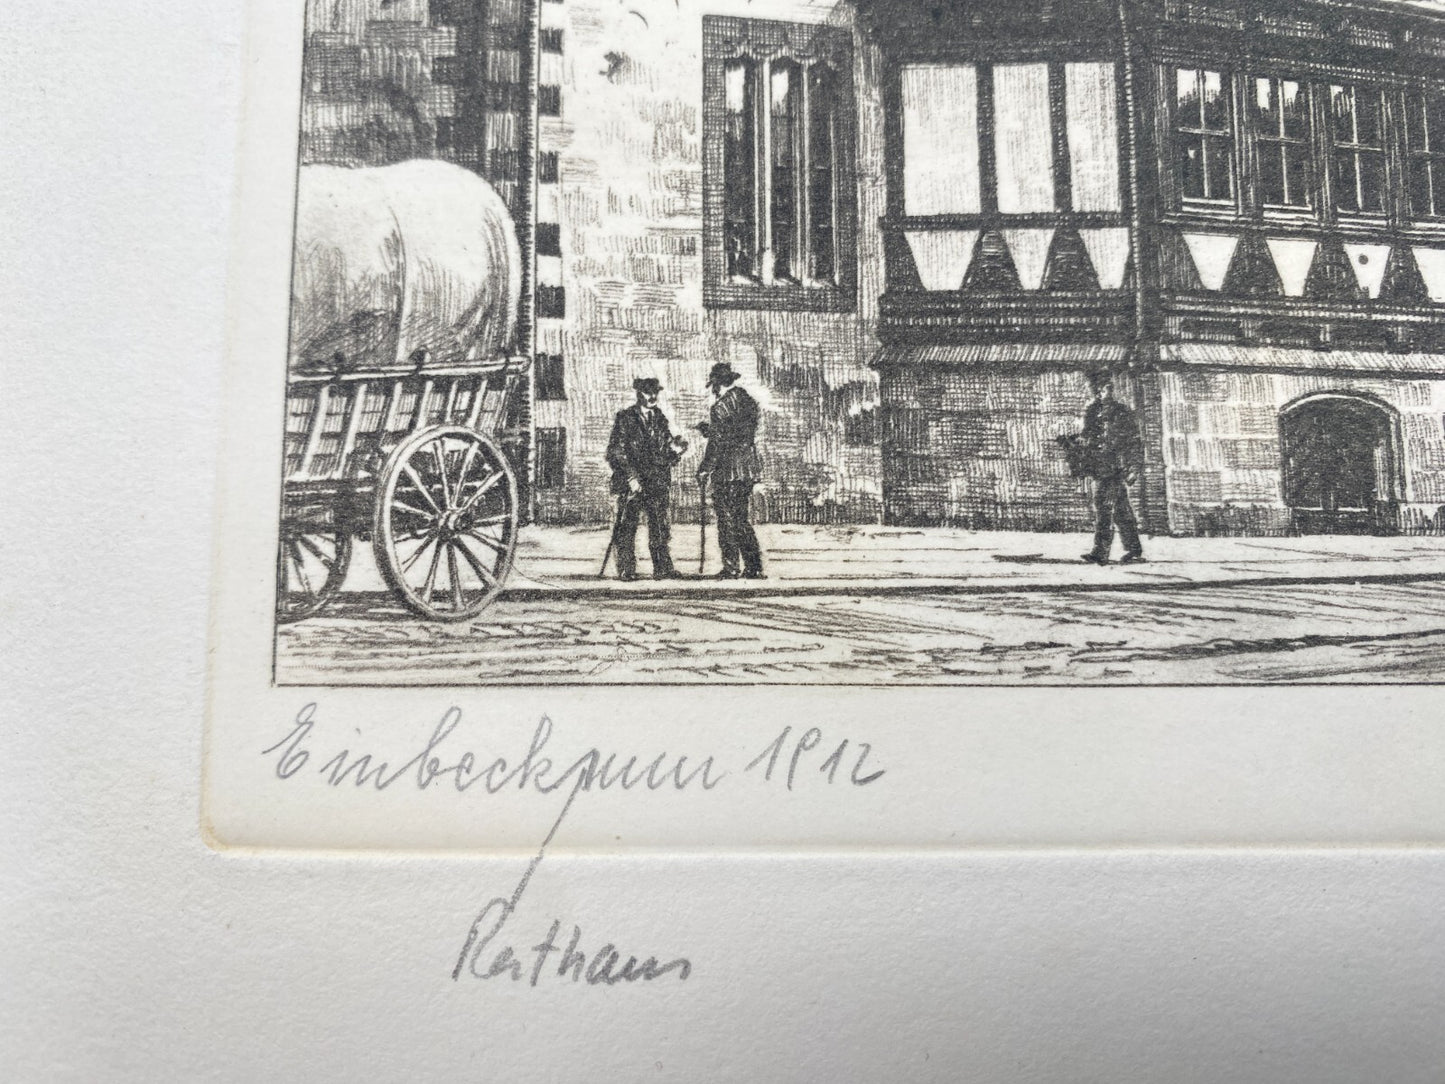 Einbeck um 1912
Rathaus